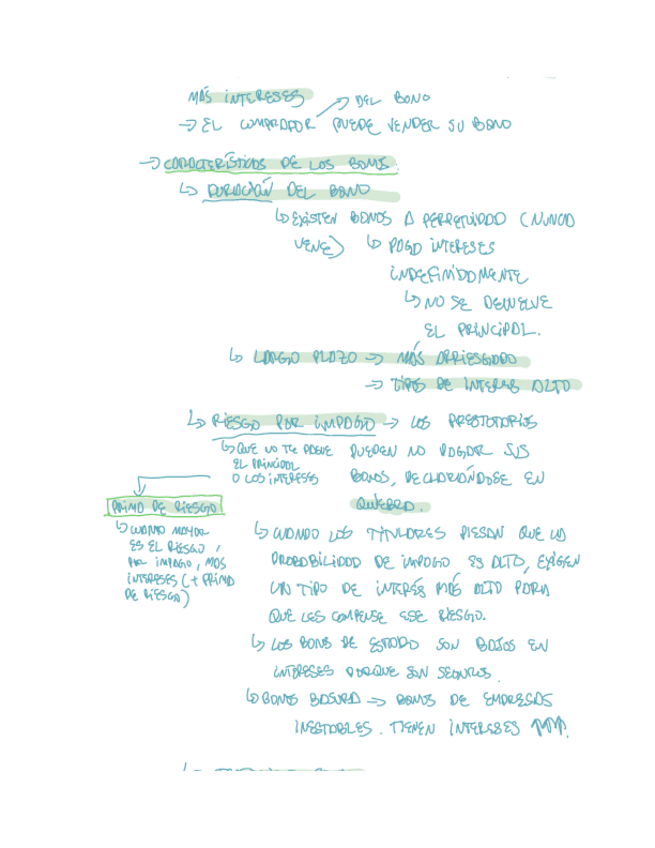 MÁS INTERESES
→ DEL BONO
→ EL COMPRADOR PUEDE VENDER SU BONO
→ CARACTERÍSTICAS DE LOS BONOS
↳ DURACIÓN DEL BONO
↳ EXISTEN BONOS A PERPETUIDAD (NUNCA
VENCE) ↳ PAGA INTERESES
INDEFINIDAMENTE
↳ NO SE DEVUELVE
EL PRINCIPAL.
↳ LARGO PLAZO → MÁS ARRIESGADO
→ TIPOS DE INTERES ALTO
↳ RIESGO POR IMPAGO → LOS PRESTATARIOS
↳ QUE NO TE PAGUE
EL PRINCIPAL
O LOS INTERESES
PUEDEN NO PAGAR SUS
BONOS, DECLARÁNDOSE EN
QUIEBRA.
PRIMA DE RIESGO
↳ CUANTO MAYOR
ES EL RIESGO,
POR IMPAGO, MAS
INTERESES (+ PRIMA
DE RIESGO)
↳ CUANDO LOS TITULARES PIENSAN QUE LA
PROBABILIDAD DE IMPAGO ES ALTA, EXIGEN
UN TIPO DE INTERÉS MÁS ALTO PARA
QUE LES COMPENSE ESE RIESGO.
↳ LOS BONOS DE ESTADO SON BAJOS EN
INTERESES PORQUE SON SEGUROS.
↳ BONOS BASURA → BONOS DE EMPRESAS
INESTABLES. TIENEN INTERESES ↑↑↑.